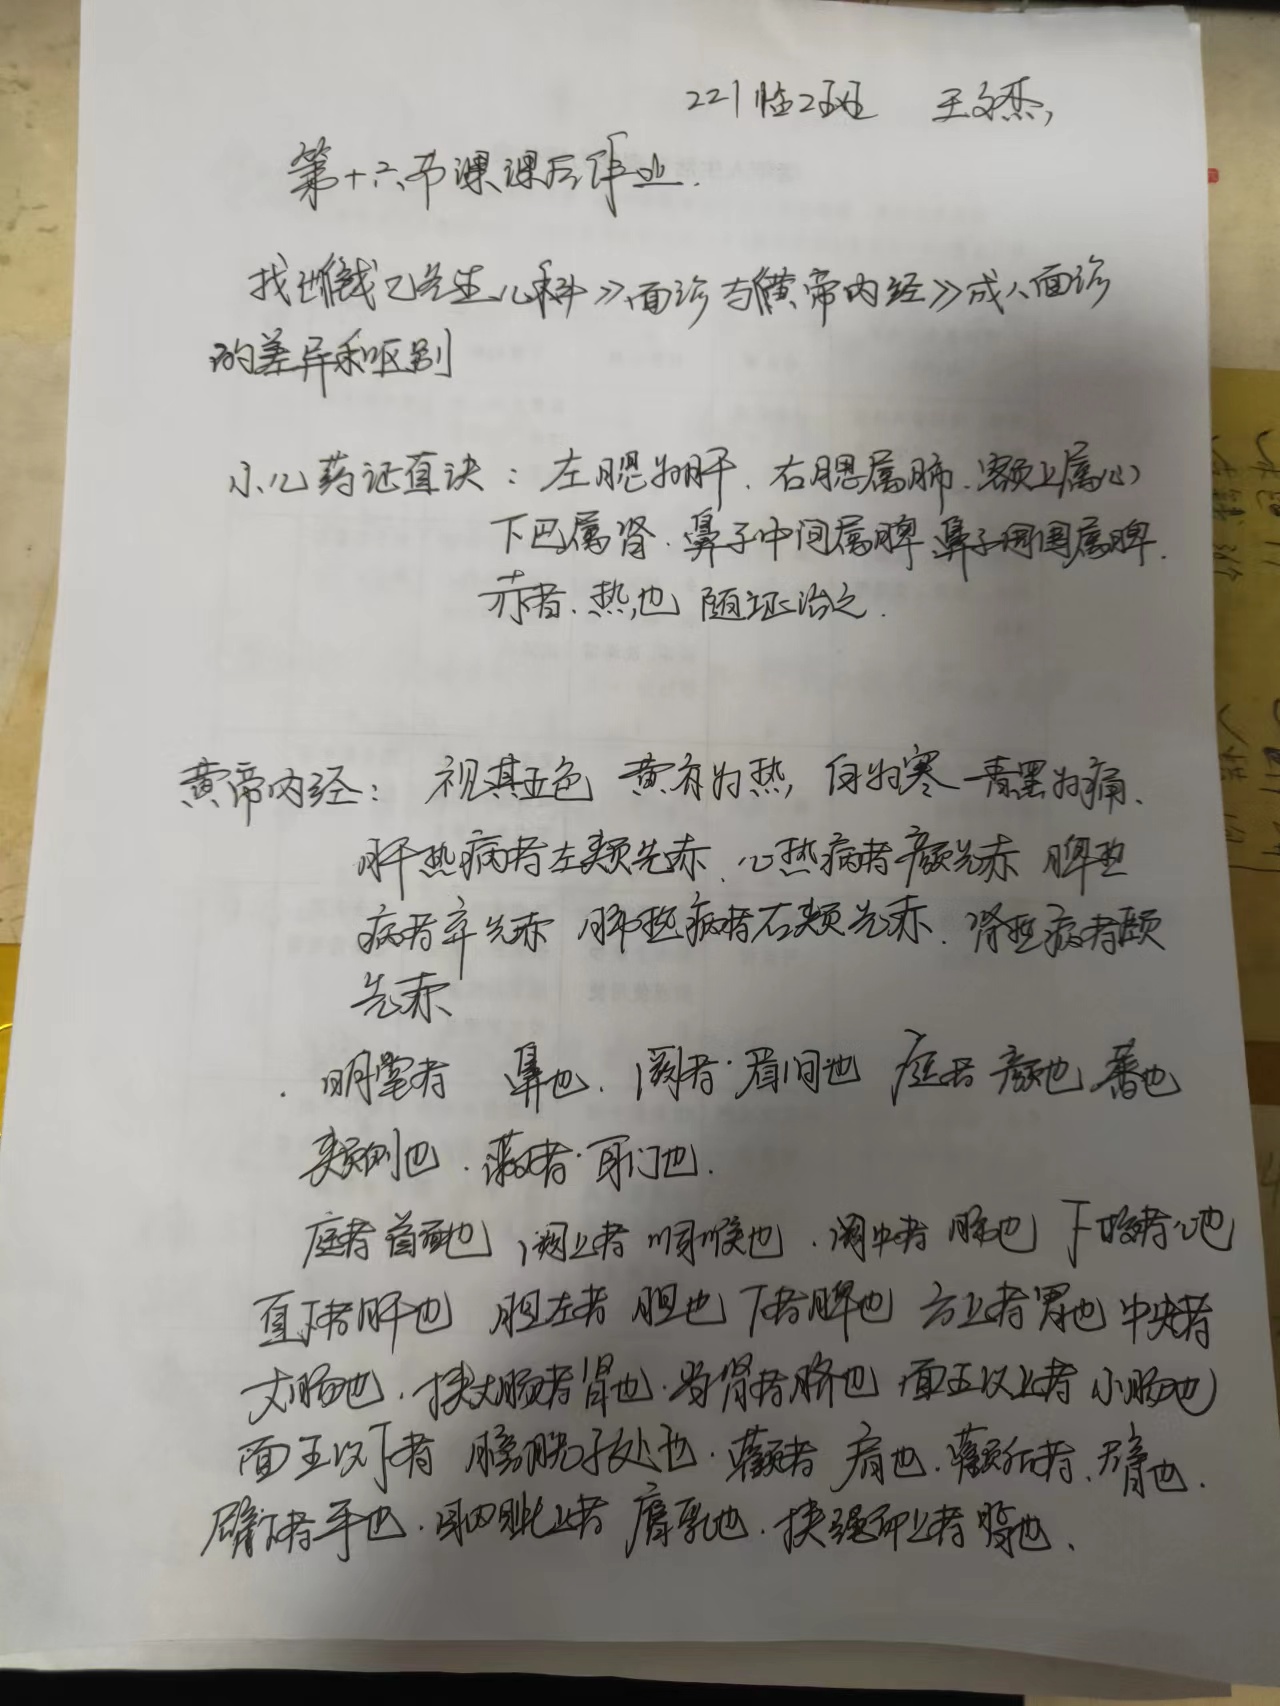 221临2班 王文杰
第十六节课课后作业.
找出《钱乙先生儿科》面诊与《黄帝内经》成人面诊
的差异和区别
小儿药证直诀：左腮为肝、右腮属肺、额上属心
下巴属肾、鼻子中间属脾 鼻子周围属脾.
赤者、热也 随证治之.
黄帝内经： 视其五色 黄赤为热, 白为寒 青黑为痛、
肝热病者左颊先赤、心热病者颜先赤 脾热
病者鼻先赤 肺热病者右颊先赤、肾热病者颐
先赤
. 明堂者 鼻也. 阙者·眉间也 庭者 颜也 蕃也
颊侧也. 蔽者·耳门也.
庭者首面也 阙上者 咽喉也. 阙中者 肺也 下极者心也
直下者肝也 肝左者 胆也 下者脾也 方上者胃也 中央者
大肠也. 挟大肠者肾也. 当肾者脐也 面王以上者 小肠也
面王以下者 膀胱子处也. 颧者 肩也. 颧后者、臂也.
臂下者手也. 目内眦上者 膺乳也. 挟绳而上者背也.